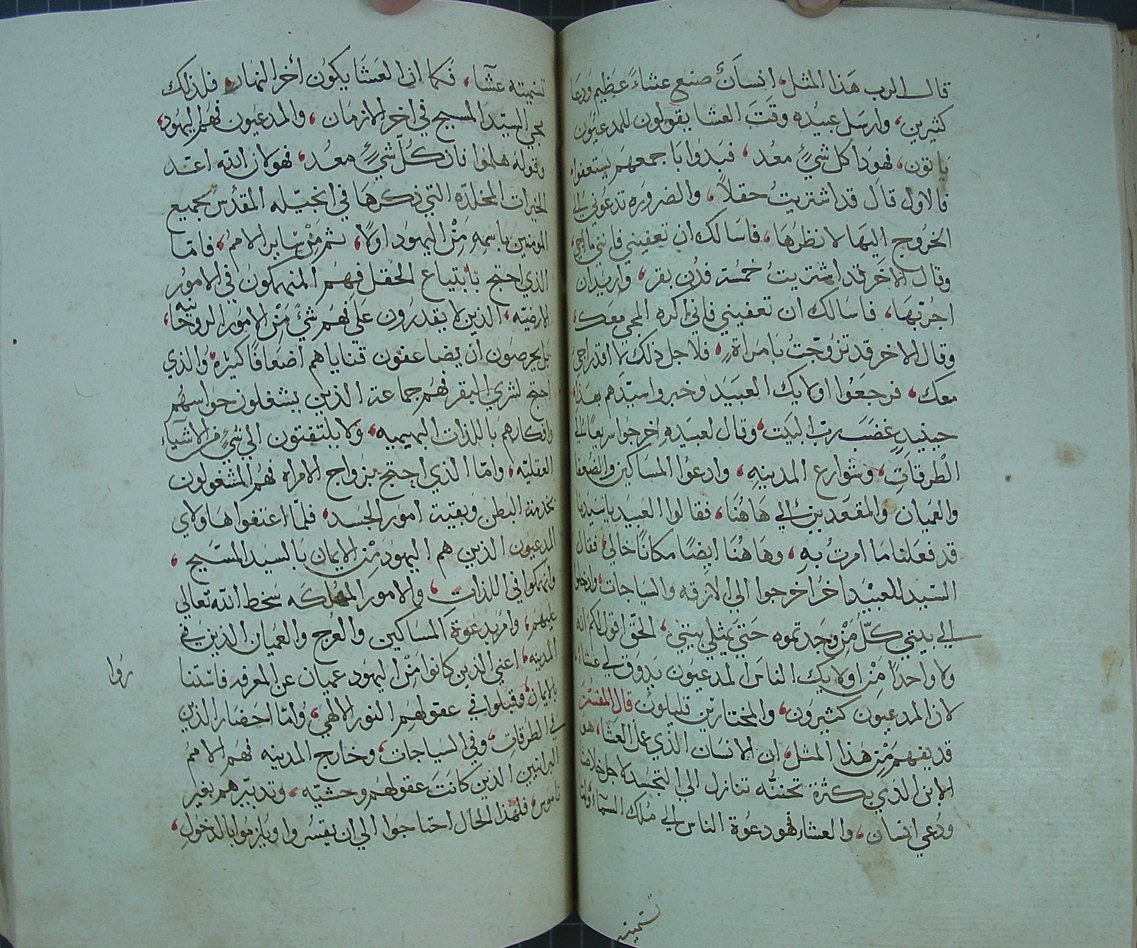 قال الرب هذا المثل، انسانٌ صنع عشاءً عظيم ودعا
كثيرين، وارسل عبيده وقت العشا يقولون للمدعيون
ياتون، هوذا كل شيءٍ معد، فبدوا باجمعهم يستعفوا
فالاول قال قد اشتريت حقلاً، والضروره تدعوني الي
الخروج اليها لانظرها، فاسالك ان تعفيني فاني ما اجي،
وقال الاخر قد اشتريت خمسة فدن بقر، واريد ان
اجربها، فاسالك ان تعفيني فاني اكره المجي معك،
وقال الاخر قد تزوجت بامراة، فلاجل ذلك لا اقدر اجي
معك، فرجعوا اولايك العبيد وخبروا سيدهم بهذا،
حينيدٍ غضب رب البيت، وقال لعبيده اخرجوا سريعاً الي
الطرقات، وشوارع المدينه، وادعوا المساكين والضعفا
والعميان والمقعدين الي هاهنا، فقالوا العبيد يا سيدنا
قد فعلنا ما امرت به، وهاهنا ايضاً مكاناً خالي، فقال
السيد للعبيد اخراً اخرجوا الي الازقه والسياجات، وادخلوا
الي بيتي كلّ من وجدتموه حتي يمتلي بيتي، الحق اقول لكم انه
ولا واحداً من اولايك الناس المدعيون يدوق لي عشاءً،
لان المدعيون كثيرون، والمختارين قليلون، قال المفسر
قد يفهم من هذا المثل، ان الانسان الذي عمل العشا، هو
الابن الذي بكثرة تحننه تنازل الي التجسد لاجل خلاصنا
ودعي انسان، والعشاء فهو دعوة الناس الي ملك السماء، وانما
تسميته
تسميته عشآ، فكما ان العشا يكون أخر النهار، فلذلك
مجي السيد المسيح في اخر الازمان، والمدعيون فهم اليهود،
وقوله هلموا فان كل شيءٍ معد، فهو لان الله اعتد
الخيرات المخلده التي ذكرها في انجيله المقدس لجميع
المومنين باسمه من اليهود اولاً، ثم من ساير الامم، فاما
الذي احتج بابتياع الحقل فهم المنهمكون في الامور
الارضيه، الذين لا يقدرون علي فهم شيءٍ من الامور الروحانيه،
بل يحرصون ان يضاعفون قناياهم اضعافاً كثيره، والذي
احتج لشري البقر فهم جماعة الذين يشغلون حواسهم
وافكارهم باللذات البهيميه، ولا يلتفتون الي شيءٍ من الاشياء
العقليه، واما الذي احتج بزواج الامراه فهم المشغولون
بخدمة البطن وبقية امور الجسد، فلما اعتفوا هاولاي
المدعيون الذين هم اليهود من الايمان بالسيد المسيح،
وانهمكوا في اللذات، والامور المهلكه سخط الله تعالي
عليهم، وامر بدعوة المساكين والعرج والعميان الذين في
المدينه، اعني الذين كانوا من اليهود عميان عن المعرفه فاستنا
روا
بالايمان، وقبلوا في عقولهم النور الالهي، وامّا احضار الذين
في الطرقات، وفي السياجات، وخارج المدينه فهم الامم
البرانيين الذين كانت عقولهم وحشيّه، وتدبيرهم بغير
ناموس، فلهذا الحال احتاجوا الي ان يقسروا ويلزموا بالدخول،